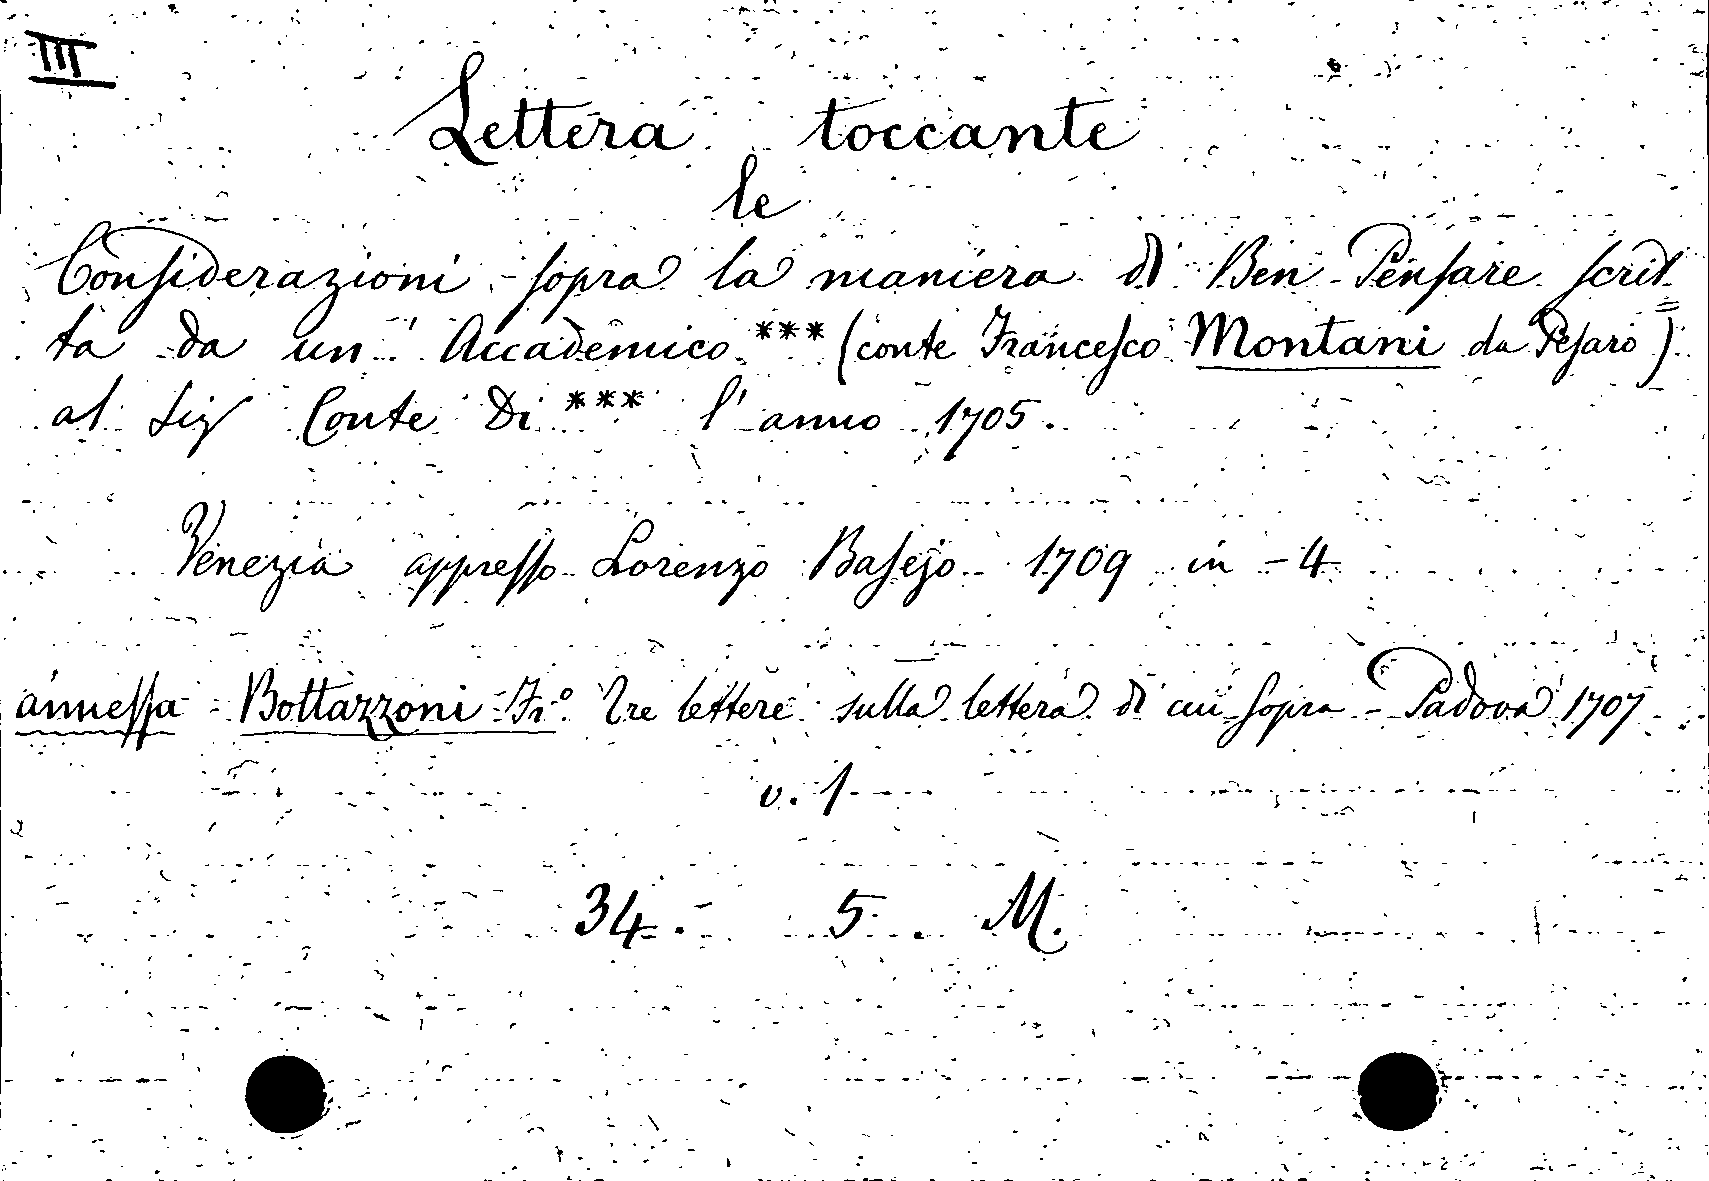 III
Lettera toccante
le
Considerazioni sopra la maniera di Ben Pensare scrit=
ta da un Accademico *** (conte Francesco Montani da Pesaro)
al Sig Conte Di *** l'anno 1705.
Venezia appresso Lorenzo Basejo 1709 in-4
annessa Bottazzoni Fr.º Tre lettere sulla lettera di cui sopra - Padova 1707
v. 1
34. 5. M.